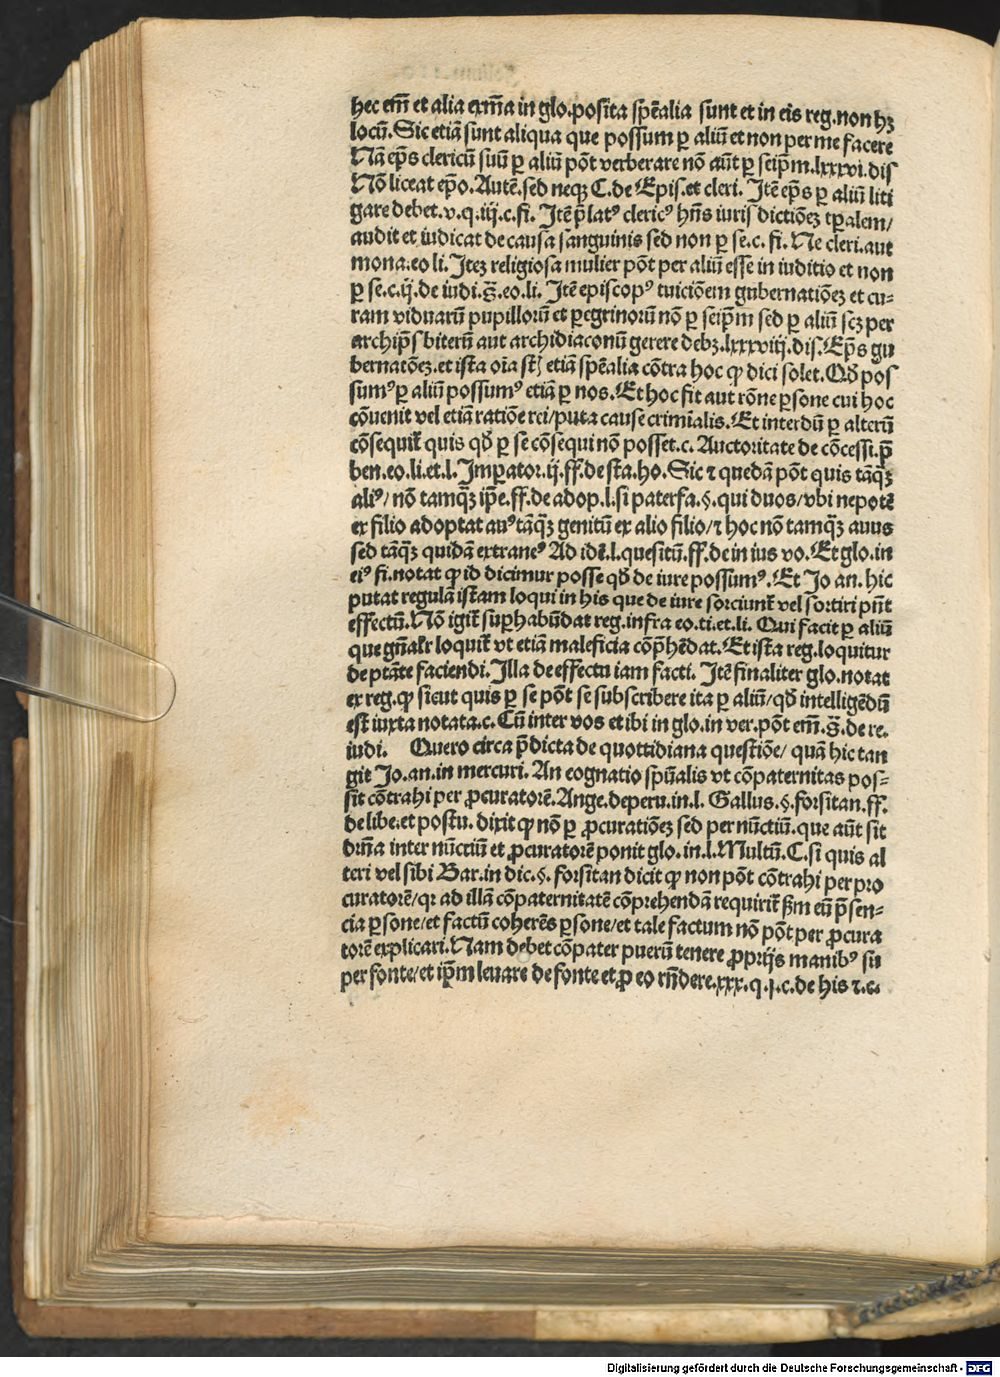 hec em̄ et alia exm̄a in glo.posita spēalia sunt et in eis reg.non hꝫ
locū.Sic etiā sunt aliqua que possum ꝑ aliū et non per me facere
Nā ep̄s clericū suū ꝑ aliū pōt verberare nō aūt ꝑ seip̄m.lxxxvi.dis
Nō liceat ep̄o.Autē.sed neqꝫ C.de Epis.et cleri. Itē ep̄s ꝑ aliū liti
gare debet.v.q.iij.c.fi. Itē p̄latꝰ clericꝰ hn̄s iuris dictiōeꝫ tꝑalem/
audit et iudicat de causa sanguinis sed non ꝑ se.c. fi. Ne cleri.aut
mona.eo li.Iteꝫ religiosa mulier pōt per aliū esse in iuditio et non
ꝑ se.c.ij.de iudi.s̄.eo.li. Itē episcopꝰ tuiciōem gubernatiōeꝫ et cu⸗
ram viduarū pupillorū et ꝑegrinorū nō ꝑ seip̄m sed ꝑ aliū scꝫ per
archip̄sbiterū aut archidiaconū gerere debꝫ.lxxxviij.dis.Ep̄s gu
bernatōeꝫ.et ista oīa st̄ etiā spēalia cōtra hoc ꝙ dici solet.Qd̄ pos
sumꝰ ꝑ aliū possumꝰ etiā ꝑ nos.Et hoc fit aut rōne ꝑsone cui hoc
cōuenit vel etiā ratiōe rei/puta cause crimīalis.Et interdū ꝑ alterū
cōsequit̄ quis qd̄ ꝑ se cōsequi nō posset.c. Auctoritate de cōcessi.p̄
ben.eo.li.et.l. Imꝑator.ij.ff.de sta.ho.Sic ⁊ quedā pōt quis tāqꝫ
aliꝰ/ nō tamqꝫ ip̄e.ff.de adop.l.si paterfa.§.qui duos/vbi nepotē
ex filio adoptat auꝰ tāqꝫ genitū ex alio filio/⁊ hoc nō tamqꝫ auus
sed tāqꝫ quidā extraneꝰ Ad idē.l.quesitū.ff.de in ius vo.Et glo.in
eiꝰ fi.notat ꝙ id dicimur posse qd̄ de iure possumꝰ.Et Jo an. hic
putat regulā istam loqui in his que de iure sorciunt̄ vel sortiri pn̄t
effectū.Nō igit̄ suꝑhabūdat reg.infra eo.ti.et.li. Qui facit ꝑ aliū
que gn̄alr̄ loquit̄ vt etiā maleficia cōp̄hēdat.Et ista reg.loquitur
de ptāte faciendi.Illa de effectu iam facti. Itē finaliter glo.notat
ex reg.ꝙ sicut quis ꝑ se pōt se subscribere ita ꝑ aliū/qd̄ intelligēdū
est iuxta notata.c. Cū inter vos et ibi in glo.in ver.pōt em̄.s̄.de re.
iudi. Quero circa p̄dicta de quottidiana questiōe/ quā hic tan
git Jo.an.in mercuri. An cognatio spūalis vt cōpaternitas pos⸗
sit cōtrahi per ꝓcuratorē.Ange.deperu.in.l. Gallus.§.forsitan.ff.
de libe.et postu. dixit ꝙ nō ꝑ ꝓcuratiōeꝫ sed per nūctiū.que aūt sit
drn̄a inter nūctiū et ꝓcuratorē ponit glo.in.l.Multū.C.si quis al
teri vel sibi Bar.in dic.§.forsitan dicit ꝙ non pōt cōtrahi per pro
curatorē/qr ad illā cōpaternitatē cōprehendā requirit̄ ſm eū p̄sen⸗
cia ꝑsone/et factū coherēs ꝑsone/et tale factum nō pōt per ꝓcura
torē explicari.Nam debet cōpater puerū tenere ꝓprijs manibꝰ su
per fonte/et ip̄m leuare de fonte et ꝓ eo rn̄dere.xxx.q.j.c.de his ⁊.c.
Digitalisierung gefördert durch die Deutsche Forschungsgemeinschaft - DFG